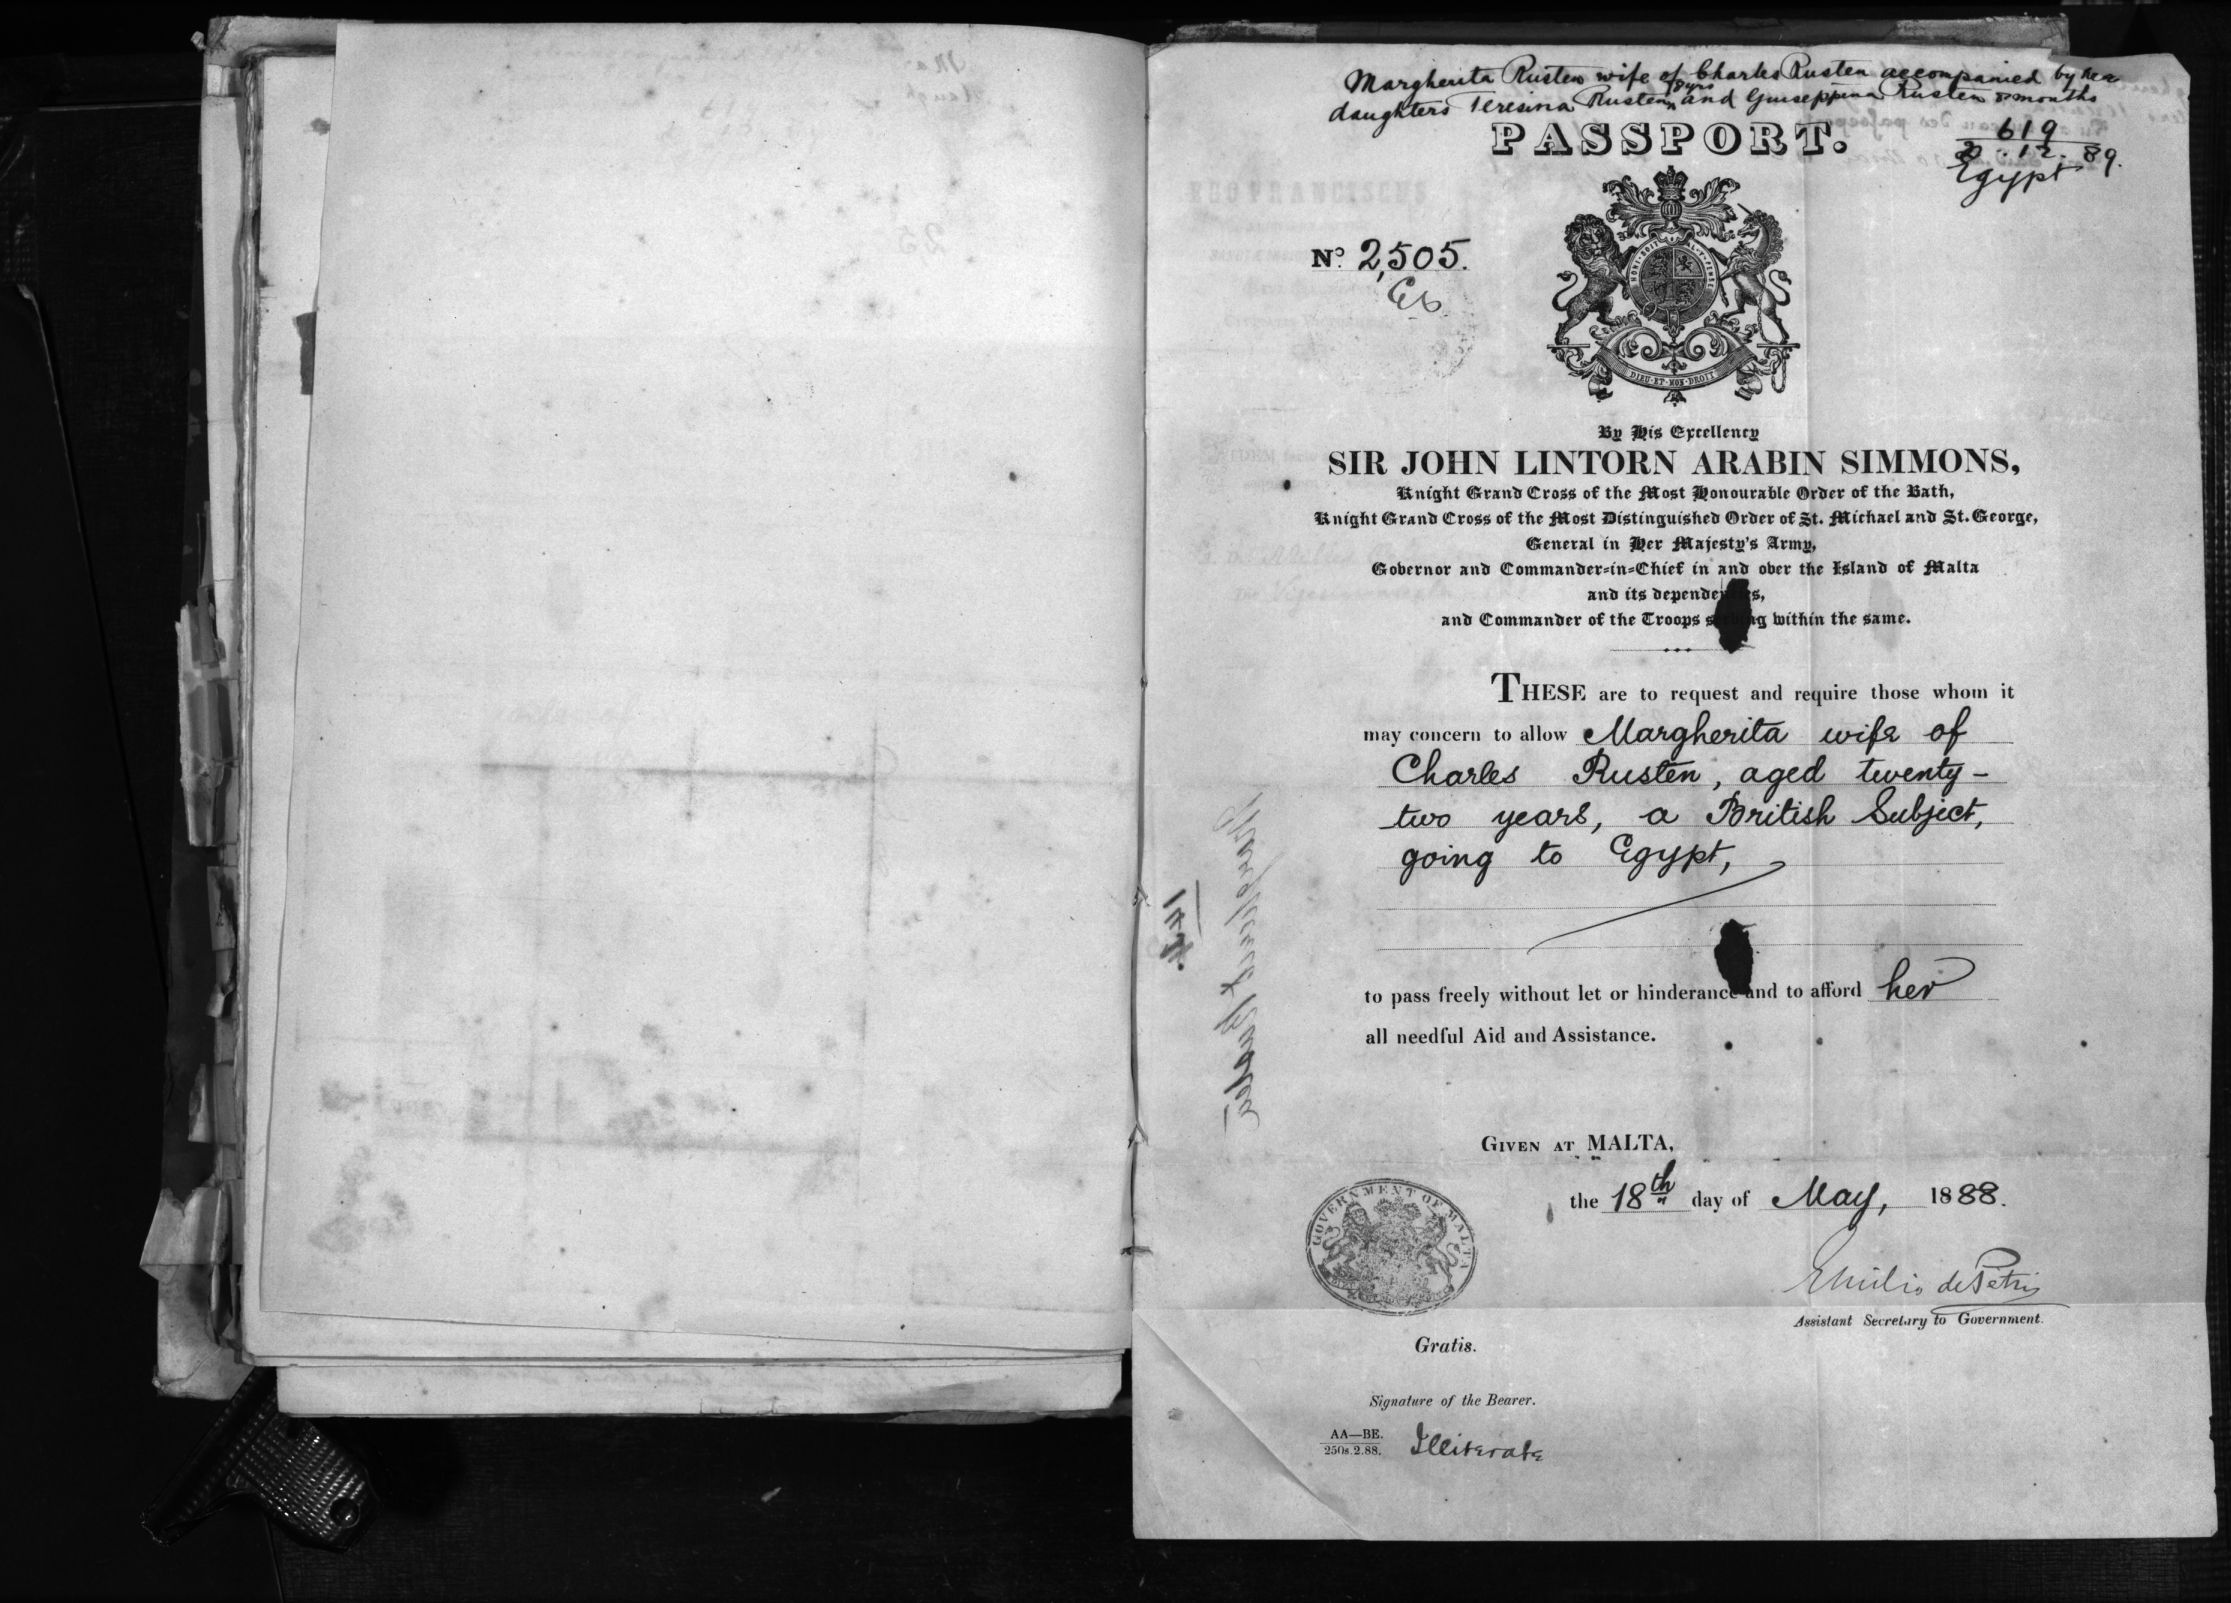 Margherita Rusten wife of Charles Rusten accompanied by her
daughters Teresina Rusten and Giuseppina Rusten 8 months
PASSPORT.
619
12. 89.
Egypt
No. 2,505.
HONI SOIT QUI MAL Y PENSE
DIEU·ET·MON·DROIT
By His Excellency
SIR JOHN LINTORN ARABIN SIMMONS,
Knight Grand Cross of the Most Honourable Order of the Bath,
Knight Grand Cross of the Most Distinguished Order of St. Michael and St. George,
General in Her Majesty's Army,
Governor and Commander-in-Chief in and over the Island of Malta
and its dependencies,
and Commander of the Troops serving within the same.
THESE are to request and require those whom it
may concern to allow Margherita wife of
Charles Rusten, aged twenty-
two years, a British Subject,
going to Egypt,
to pass freely without let or hinderance and to afford her
all needful Aid and Assistance.
GIVEN AT MALTA,
the 18th day of May, 1888.
GOVERNMENT OF MALTA
Emilio de Petri
Assistant Secretary to Government.
Gratis.
Signature of the Bearer.
AA—BE.
250s.2.88.
Illiterate